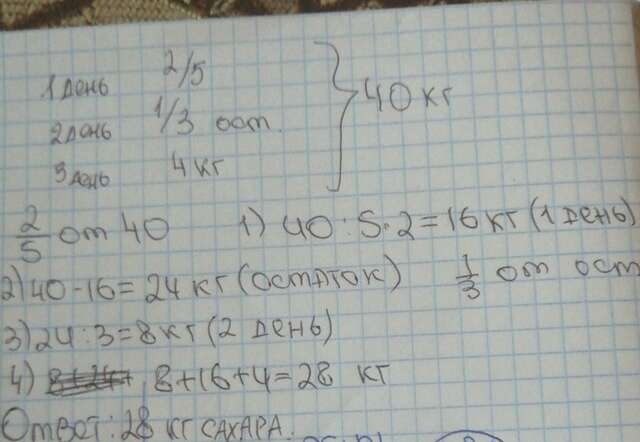 1 день 2/5
2 день 1/3 ост.
3 день 4 кг
40 кг
2/5 от 40 1) 40:5·2=16 кг (1 день)
2) 40-16=24 кг (остаток) 1/3 от ост
3) 24:3=8 кг (2 день)
4) 8+16+4=28 кг
Ответ: 28 кг сахара.